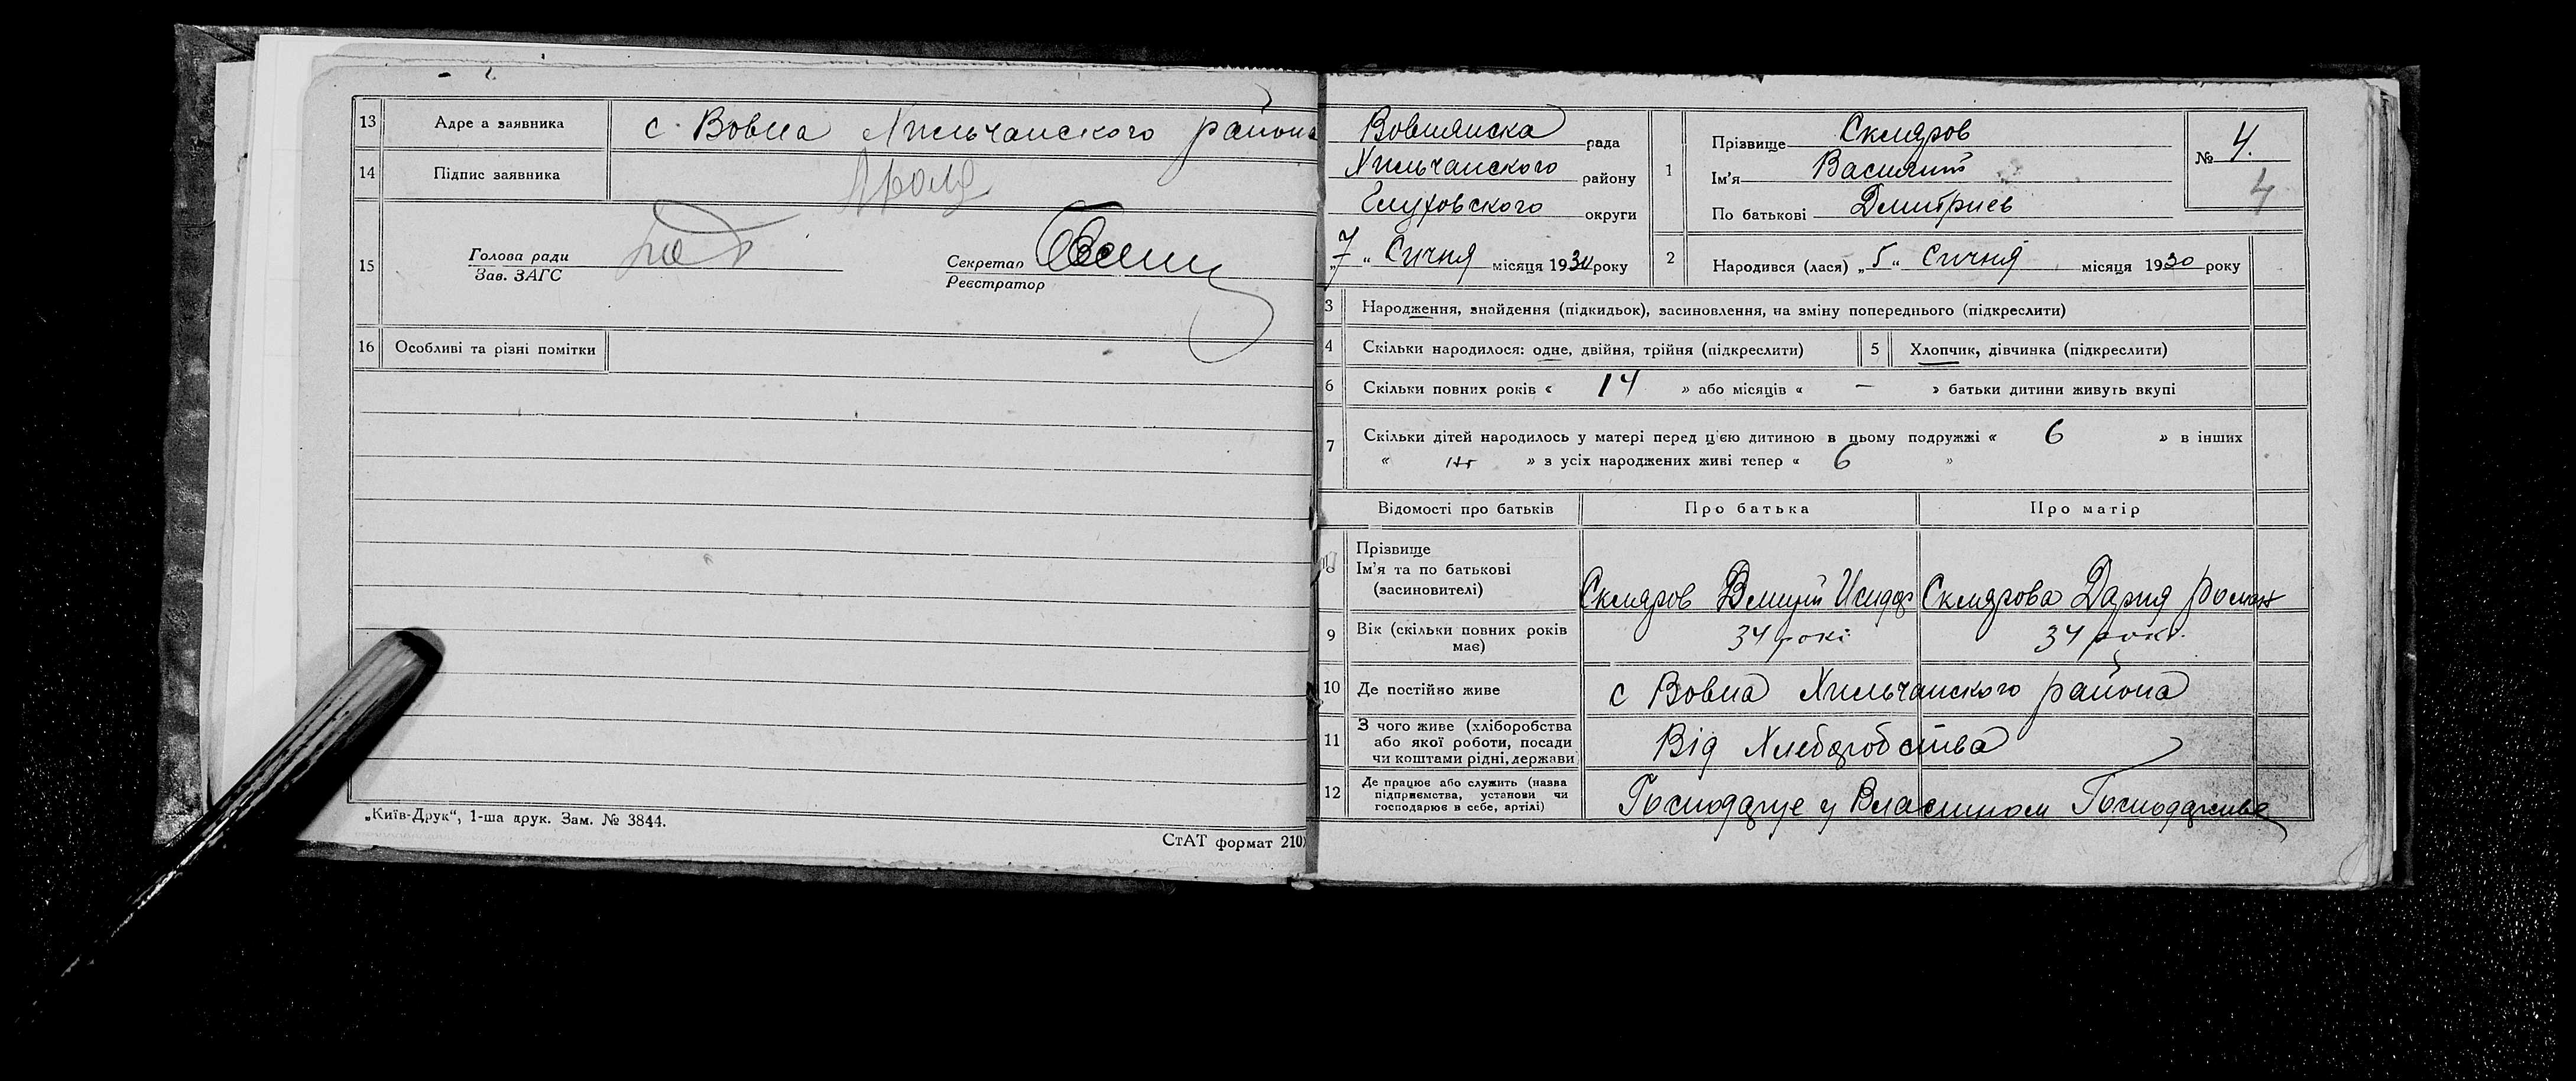 13 Адре а заявника с. Вовна Хильчанского района
14 Підпис заявника
15 Голова ради
Зав. ЗАГС
Секретар
Реєстратор
16 Особливі та різні помітки
„Київ-Друк“, 1-ша друк. Зам. № 3844.
СтАТ формат 210
Вовнянска рада
Хильчанского району
Глуховского округи
„7“ Січня місяця 1930 року
1 Прізвище Скляров
Ім'я Василий
По батькові Дмитриев
№ 4.
4
2 Народився (лася) „5“ Січня місяця 1930 року
3 Народження, знайдення (підкидьок), засиновлення, на зміну попереднього (підкреслити)
4 Скільки народилося: одне, двійня, трійня (підкреслити)
5 Хлопчик, дівчинка (підкреслити)
6 Скільки повних років « 14 » або місяців « — » батьки дитини живуть вкупі
7 Скільки дітей народилось у матері перед цією дитиною в цьому подружжі « 6 » в інших
« нт » з усіх народжених живі тепер « 6 »
Відомості про батьків Про батька Про матір
Прізвище
Ім'я та по батькові
(засиновителі)
Скляров Дмитрий Исидор
Склярова Дария Роман
9 Вік (скільки повних років
має)
34 рокі
34 рокі
10 Де постійно живе с Вовна Хильчанского района
11 З чого живе (хліборобства
або якої роботи, посади
чи коштами рідні, держави
Від Хлеборобства
12 Де працює або служить (назва
підприємства, установи чи
господарює в себе, артілі)
Господарує у Власном Господарстве